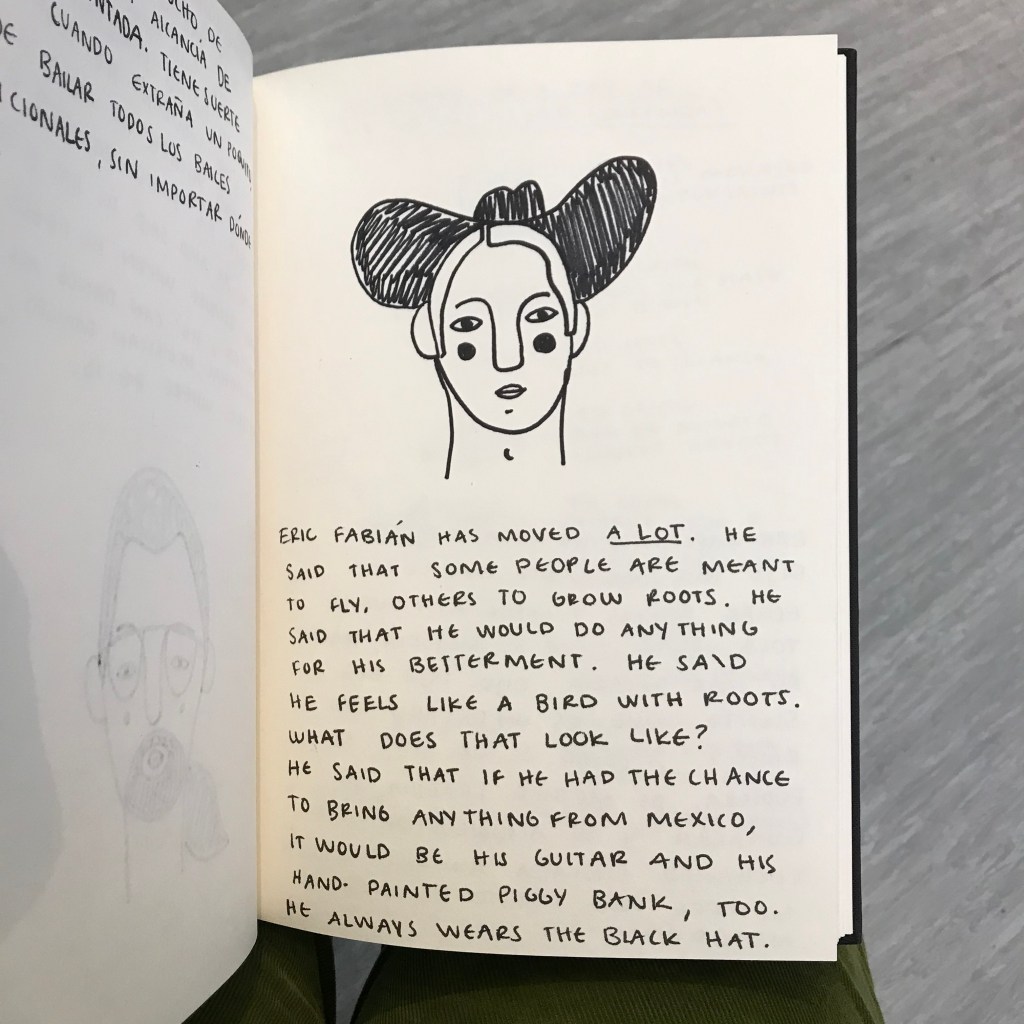 CHO, DE
NTADA. ALCANCÍA DE
CUANDO TIENE SUERTE
DE EXTRAÑA UN POQUI
BAILAR TODOS LOS BAILES
CIONALES, SIN IMPORTAR DÓNDE
ERIC FABIÁN HAS MOVED A LOT. HE
SAID THAT SOME PEOPLE ARE MEANT
TO FLY, OTHERS TO GROW ROOTS. HE
SAID THAT HE WOULD DO ANYTHING
FOR HIS BETTERMENT. HE SAID
HE FEELS LIKE A BIRD WITH ROOTS.
WHAT DOES THAT LOOK LIKE?
HE SAID THAT IF HE HAD THE CHANCE
TO BRING ANYTHING FROM MEXICO,
IT WOULD BE HIS GUITAR AND HIS
HAND-PAINTED PIGGY BANK, TOO.
HE ALWAYS WEARS THE BLACK HAT.